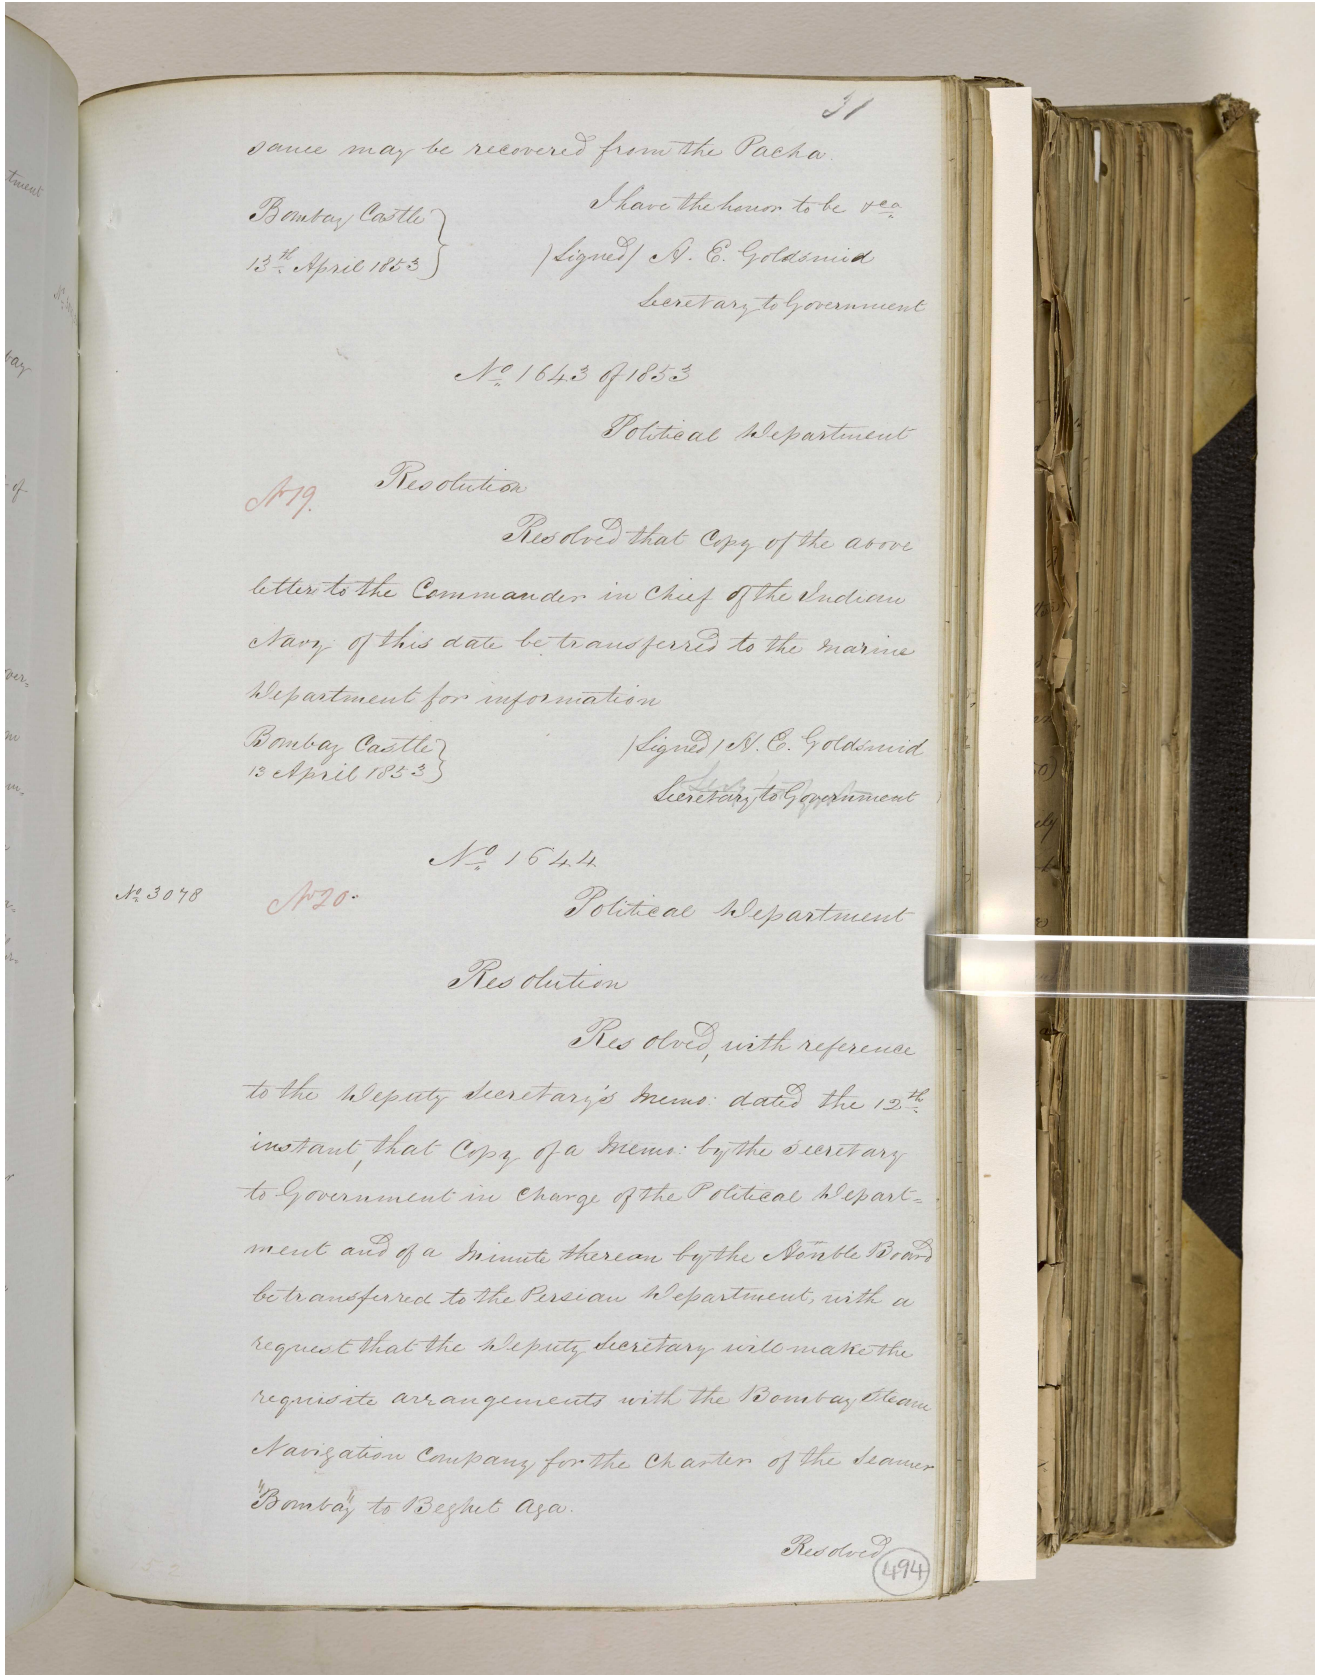 31
sance may be recovered from the Pacha.
I have the honor to be &ca
Bombay Castle
13th April 1853
(Signed) H. E. Goldsmid
Secretary to Government
No 1643 of 1853
Political Department
Resolution
No 19.
Resolved that Copy of the above
letter to the Commander in Chief of the Indian
Navy of this date be transferred to the Marine
Department for information
Bombay Castle
13 April 1853
(Signed) H. E. Goldsmid
Secretary to Government
No 1644
No 3078
No 20.
Political Department
Resolution
Resolved, with reference
to the Deputy Secretary's Memo: dated the 12th
instant, that Copy of a Memo: by the Secretary
to Government in charge of the Political Depart=
ment and of a Minute thereon by the Honble Board
be transferred to the Persian Department, with a
request that the Deputy Secretary will make the
requisite arrangements with the Bombay Steam
Navigation Company for the Charter of the Seamer
"Bombay" to Beghet Aga.
Resolved
494